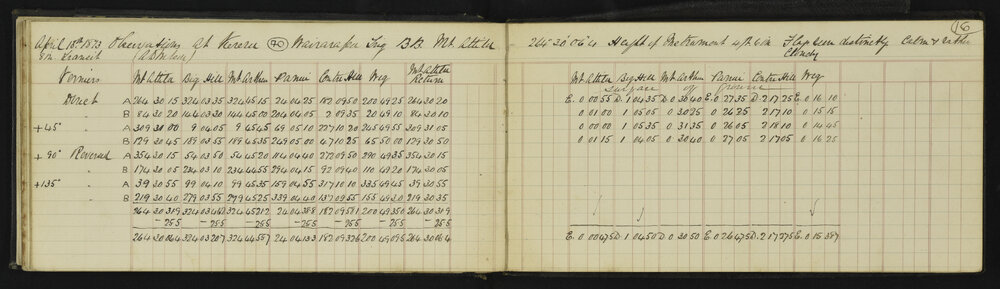 16
April 18th 1873 Observations at Rerera 70 Wairarapa Trig B.B. Mt Attila 264° 30' 06"4 Height of Instrument 4 ft 6 in Flags seen distinctly Calm &
8 in Transit Cloudy
Verniers Mt Attila Big Hill Mt Arthur Panui Centre Hill Weg Mt Attila Return Mt Attila Big Hill Mt Arthur Panui Centre Hill Weg
Surface of ground
Direct A 264 30 15 324 03 35 324 45 15 24 04 25 182 09 50 200 49 25 264 30 20 E. 0 00 55 D 1 04 35 D 0 30 40 E 0 27 35 D 2 17 25 E 0 16 10
" B 84 30 20 144 03 30 144 45 00 204 04 05 2 09 35 20 49 10 84 30 10 0 01 00 1 05 05 0 30 25 0 26 25 2 17 10 0 15 15
+45° A 309 31 00 9 04 05 9 45 45 69 05 10 227 10 20 245 49 55 309 31 05 0 00 00 1 05 35 0 31 35 0 26 05 2 18 10 0 14 45
" B 129 30 45 189 03 55 189 45 35 249 05 00 47 10 25 65 50 00 129 30 50 0 01 15 1 04 05 0 30 40 0 27 05 2 17 05 0 16 25
+90° Reversed A 354 30 15 54 03 50 54 45 20 114 04 40 272 09 50 290 49 35 354 30 15
" B 174 30 05 234 03 10 234 44 55 294 04 15 92 09 40 110 49 20 174 30 05
+135° A 39 30 55 99 04 10 99 45 35 159 04 55 317 10 10 335 49 45 39 30 55
" B 219 30 40 279 03 55 279 45 25 339 04 40 137 09 55 155 49 30 219 30 35
264 30 31 9 324 03 46 2 324 45 21 2 24 04 38 8 182 09 58 1 200 49 35 0 264 30 31 9
-25 5 -25 5 -25 5 -25 5 -25 5 -25 5 -25 5
264 30 06 4 324 03 20 7 324 44 55 7 24 04 13 3 182 09 32 6 200 49 09 5 264 30 06 4 E. 0 00 47 5 D 1 04 50 D 0 30 50 E 0 26 47 5 D 2 17 27 5 E 0 15 38 7